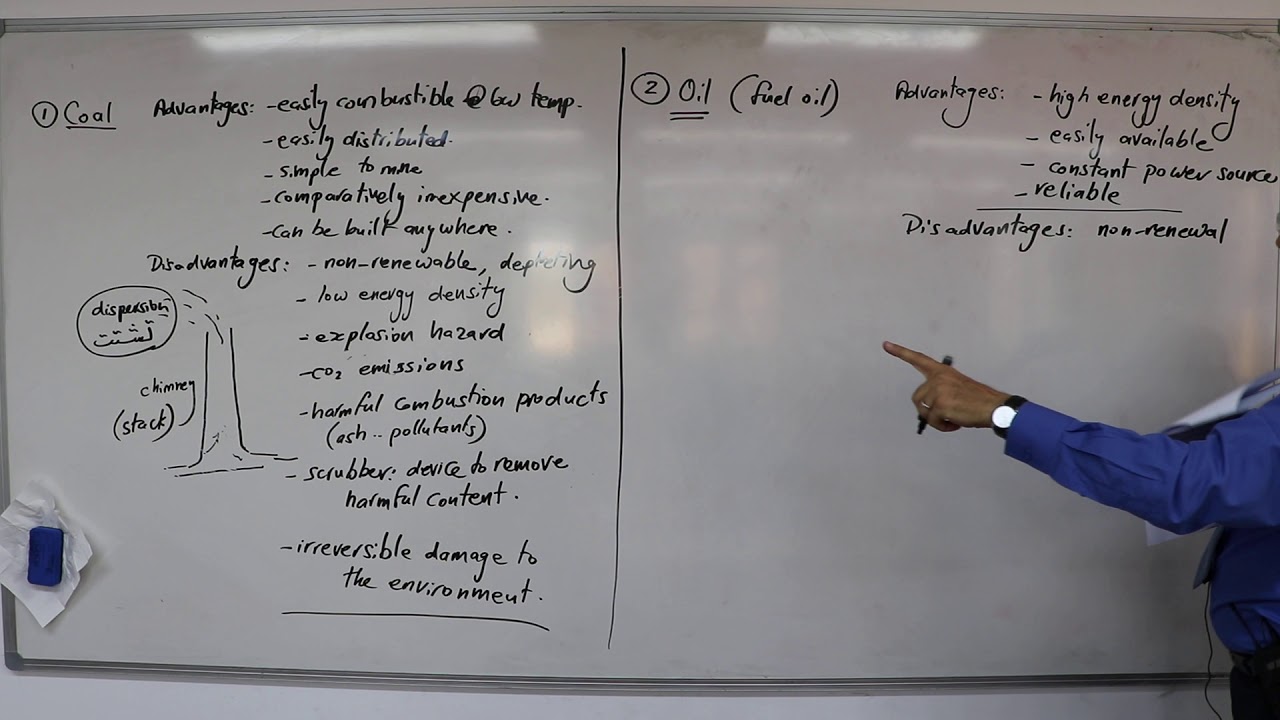 ① Coal Advantages: - easily combustible @ low temp.
- easily distributed.
- simple to mine
- comparatively inexpensive.
- can be built anywhere.
Disadvantages: - non-renewable, depleting
- low energy density
- explosion hazard
- CO₂ emissions
- harmful combustion products
(ash .. pollutants)
- scrubber: device to remove
harmful content.
- irreversible damage to
the environment.
dispersion
تشتت
chimney
(stack)
② Oil (fuel oil) Advantages: - high energy density
- easily available
- constant power source
- reliable
Disadvantages: non-renewal